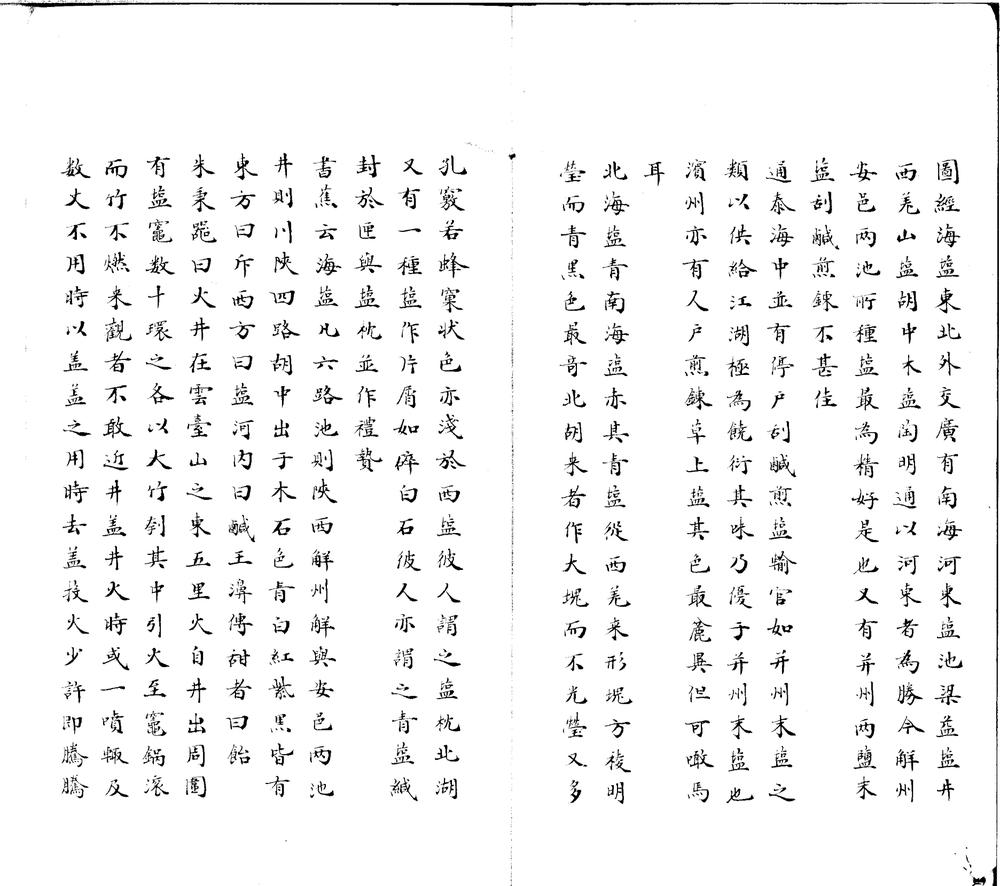 圖經海鹽東北外交廣有南海河東塩池梁益塩井
西羌山塩胡中木塩陶明通以河東者為勝今解州
安邑两池所種塩最為精好是也又有并州两鹽末
塩刮鹹煎鍊不甚佳
通泰海中並有停户刮鹹煎塩輸官如并州末塩之
類以供給江湖極為饒衍其味乃優于并州末塩也
濱州亦有人户煎鍊草上塩其色最麄異但可啖馬
耳
北海塩青南海塩赤其青塩從西羌来形塊方稜明
瑩而青黑色最奇北胡来者作大塊而不光瑩又多
孔竅若蜂窠状色亦淺於西塩彼人謂之塩枕北湖
又有一種塩作片屑如碎白石彼人亦謂之青塩緘
封於匣與塩枕並作禮贄
書蕉云海塩凡六路池則陝西解州解與安邑两池
井則川陝四路胡中出于木石色青白紅紫黑皆有
東方曰斥西方曰塩河内曰鹹王濞傳甜者曰飴
朱秉䠖曰火井在雲臺山之東五里火自井出周圍
有塩竈数十環之各以大竹刳其中引火至竈鍋滚
而竹不燃来觀者不敢近井盖井火時或一噴輙及
数丈不用時以盖盖之用時去盖投火少許即騰騰